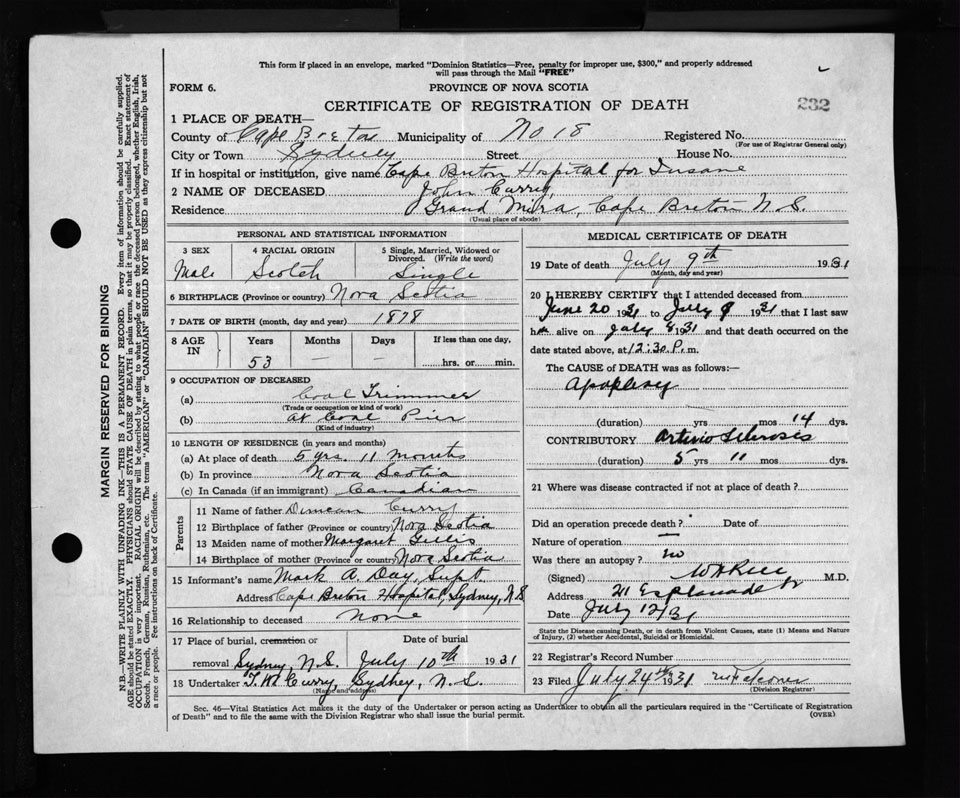 This form if placed in an envelope, marked "Dominion Statistics—Free, penalty for improper use, $300," and properly addressed
will pass through the Mail "FREE"
FORM 6.
PROVINCE OF NOVA SCOTIA
232
CERTIFICATE OF REGISTRATION OF DEATH
1 PLACE OF DEATH—
County of Cape Breton Municipality of No 18 Registered No.
(For use of Registrar General only)
City or Town Sydney Street House No.
If in hospital or institution, give name Cape Breton Hospital for Insane
2 NAME OF DECEASED John Curry
Residence Grand Mira, Cape Breton N.S.
(Usual place of abode)
PERSONAL AND STATISTICAL INFORMATION
3 SEX 4 RACIAL ORIGIN 5 Single, Married, Widowed or
Divorced. (Write the word)
Male Scotch Single
6 BIRTHPLACE (Province or country) Nova Scotia
7 DATE OF BIRTH (month, day and year) 1878
8 AGE IN Years Months Days If less than one day,
53 — — hrs. or min.
9 OCCUPATION OF DECEASED
(a) Coal Trimmer
(Trade or occupation or kind of work)
(b) At Coal Pier
(Kind of industry)
10 LENGTH OF RESIDENCE (in years and months)
(a) At place of death 5 yrs. 11 months
(b) In province Nova Scotia
(c) In Canada (if an immigrant) Canadian
Parents
11 Name of father Duncan Curry
12 Birthplace of father (Province or country) Nova Scotia
13 Maiden name of mother Margaret Gillis
14 Birthplace of mother (Province or country) Nova Scotia
15 Informant's name Mark A. Day, Supt.
Address Cape Breton Hospital, Sydney, N.S.
16 Relationship to deceased None
17 Place of burial, cremation or Date of burial
removal Sydney, N.S. July 10th 1931
18 Undertaker T.W. Curry, Sydney, N.S.
(Name and address)
MEDICAL CERTIFICATE OF DEATH
19 Date of death July 9th 1931
(Month, day and year)
20 I HEREBY CERTIFY that I attended deceased from
June 20 1931 to July 9 1931 that I last saw
him alive on July 8 1931 and that death occurred on
date stated above, at 12:30.P. m.
The CAUSE of DEATH was as follows:—
Apoplexy
(duration) yrs mos 14 dys.
CONTRIBUTORY Arterio Sclerosis
(duration) 5 yrs 11 mos dys.
21 Where was disease contracted if not at place of death?
Did an operation precede death? Date of
Nature of operation —
Was there an autopsy? no
(Signed) M.D.
Address 211 Esplanade
Date July 12/31
State the Disease causing Death, or in death from Violent Causes, state (1) Means and Nature
of Injury, (2) whether Accidental, Suicidal or Homicidal.
22 Registrar's Record Number
23 Filed July 24th 1931
(Division Registrar)
Sec. 46—Vital Statistics Act makes it the duty of the Undertaker or person acting as Undertaker to obtain all the particulars required in the "Certificate of Registration
of Death" and to file the same with the Division Registrar who shall issue the burial permit. (OVER)
MARGIN RESERVED FOR BINDING
N.B.—WRITE PLAINLY WITH UNFADING INK—THIS IS A PERMANENT RECORD. Every item of information should be carefully supplied.
AGE should be stated EXACTLY. PHYSICIANS should STATE CAUSE OF DEATH in plain terms, so that it may be properly classified. Exact statement of
OCCUPATION is very important. RACIAL ORIGIN will be described by stating to what people or race the deceased person belonged, whether English, Irish,
Scotch, French, German, Russian, Ruthenian, etc. The terms "AMERICAN" or "CANADIAN" SHOULD NOT BE USED as they express citizenship but not
a race or people. Fee instructions on back of Certificate.